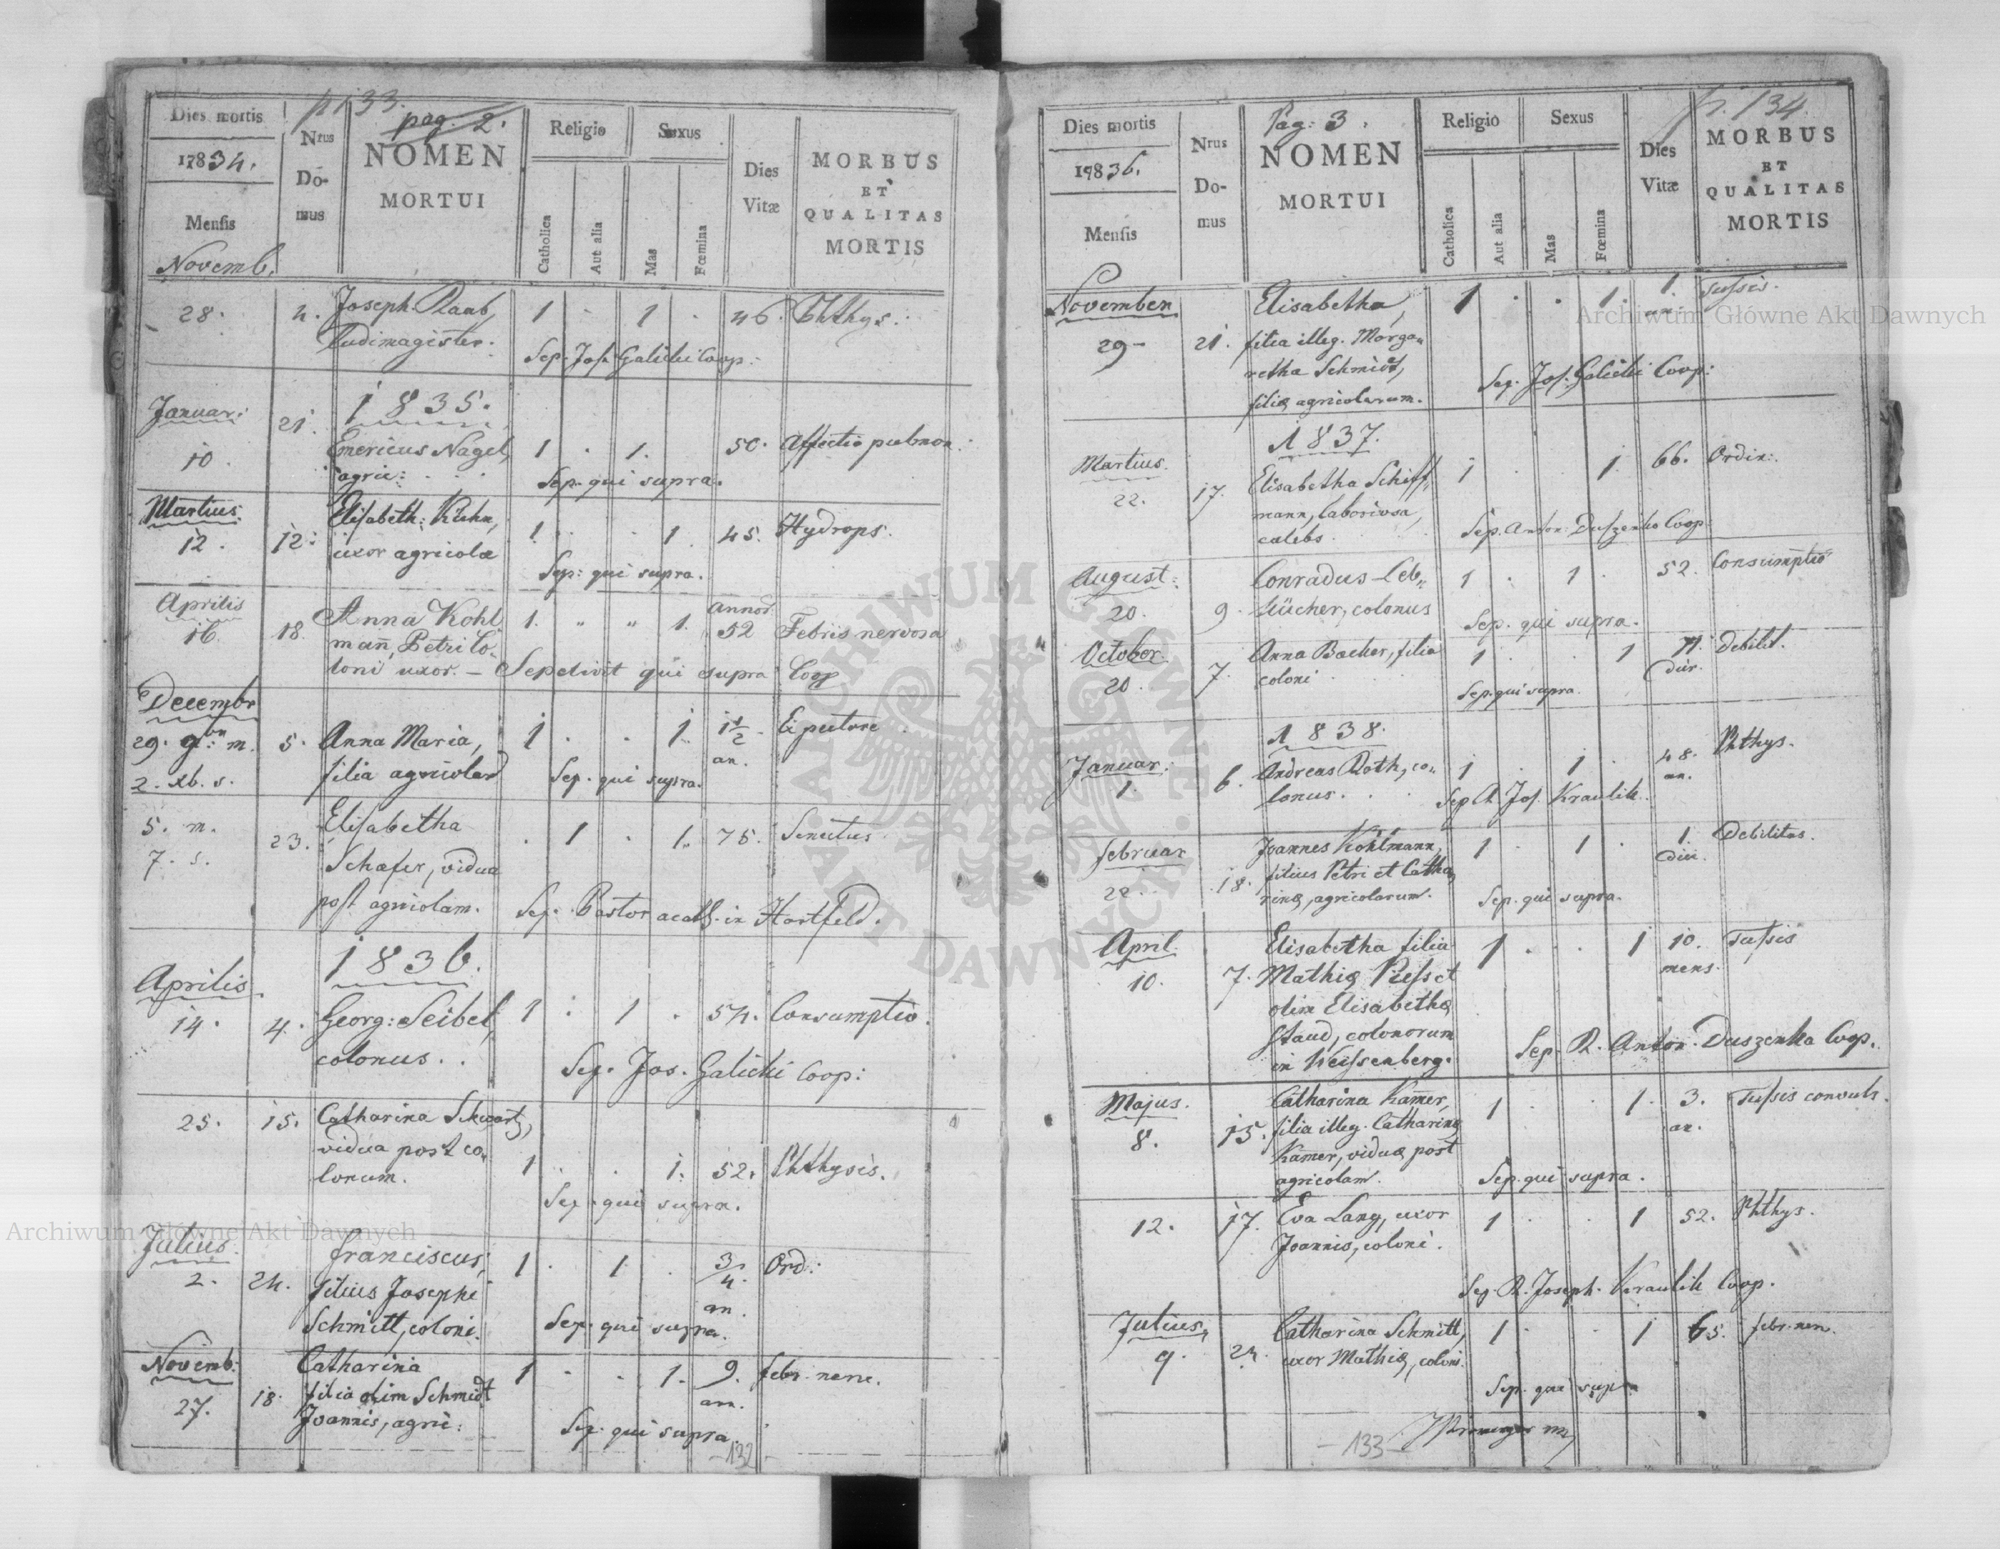 p. 133.
pag. 2.
Dies mortis
1834.
Mensis
Nrus
Do-
mus
NOMEN
MORTUI
Religio
Catholica
Aut alia
Sexus
Mas
Fœmina
Dies
Vitæ
MORBUS
ET
QUALITAS
MORTIS
Novemb.
28. 4. Joseph Raab, 1 . 1 . 46. Phthys:
Ludimagister. Sep. Jos. Galicki Coop:
1835.
Januar: 21.
10. Emericus Nagel, 1 . 1. 50. Affectio pulmon:
agric: Sep. qui supra.
Martius. Elisabeth: Kuhn,
12. 12. uxor agricolæ 1. . 1 45. Hydrops.
Sep: qui supra.
Aprilis
16. 18. Anna Kohl 1. " " 1. annor. 52 Febris nervosa
mañ, Petri Co-
loni uxor. – Sepelivit qui supra Coop
Decembr
29. 9br. m. 5. Anna Maria, 1 . . 1 1 1/2 an. E pectore
2. xb. s. filia agricolar Sep. qui supra.
5. m. 23. Elisabetha . 1 . 1. 75. Senectus
7. s. Schafer, vidua
post agricolam. Sep. Pastor acath. in Hartfeld.
1836.
Aprilis
14. 4. Georg: Seibel, 1 . 1 . 54. Consumptio.
colonus. Sep. Jos. Galicki Coop:
25. 15. Catharina Schwartz,
vidua post co-
lonum. 1 . . 1. 52. Phthysis.
Sep. qui supra.
Julius.
2. 24. Franciscus, 1 . 1 . 3/4. an. Ord:
filius Josephi
Schmitt, coloni. Sep. qui supra.
Novemb:
27. 18. Catharina 1 . . 1. 9. an. febr. nerv.
filia olim Schmidt
Joannis, agric: Sep. qui supra.
– 132 –
p. 134.
Pag: 3.
Dies mortis
1836.
Mensis
Nrus
Do-
mus
NOMEN
MORTUI
Religio
Catholica
Aut alia
Sexus
Mas
Fœmina
Dies
Vitæ
MORBUS
ET
QUALITAS
MORTIS
November
29 – 21. Elisabetha, 1 . . 1. 1. an. Tussis.
filia illeg. Marga-
retha Schmidt,
filiæ agricolarum. Sep. Jos. Galicki Coop:
1837.
Martius.
22. 17. Elisabetha Schiff- 1 . 1. 66. Ordin:
mann, laboriosa,
calebs. Sep. Anton: Duszenko Coop:
August:
20. 9. Conradus Leb- 1 . 1 . 52. Consumptio
kücher, colonus Sep. qui supra.
October.
20. 7. Anna Bacher, filia 1 . . 1 Debilit.
coloni Sep. qui supra.
1838.
Januar:
1. 6. Andreas Roth, co- 1 . 1 . 48. an. Phthys.
lonus. Sep. R. Jos. Kraulik.
Februar
22. 18. Joannes Kohlmann, 1 . 1 . 1. Debilitas.
filius Petri et Catha-
rinæ, agricolarum. Sep. qui supra.
April.
10. 7. Elisabetha filia 1 . . 1 10. mens. Tussis
Mathiæ et
olim Elisabethæ
Staud, colonorum
in Weissenberg. Sep. R. Anton. Duszenko Coop.
Majus.
8. 15. Catharina Kamer, 1 . . 1. 3. an. Tussis convuls.
filia illeg. Catharinæ
Kamer, viduæ post
agricolam. Sep. qui supra.
12. 17. Eva Lang, uxor 1 . . 1 52. Phthys.
Joannis, coloni.
Sep. R. Joseph. Kraulik Coop.
Julius,
9. 24. Catharina Schmitt, 1 . . 1 65. febr. nerv.
uxor Mathiæ, coloni.
Sep. qui supra
– 133 –
Archiwum Główne Akt Dawnych
Archiwum Główne Akt Dawnych
ARCHIWUM GŁÓWNE AKT DAWNYCH